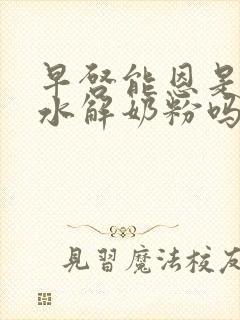 早啓能恩是
水解奶粉吗
見習魔法校友